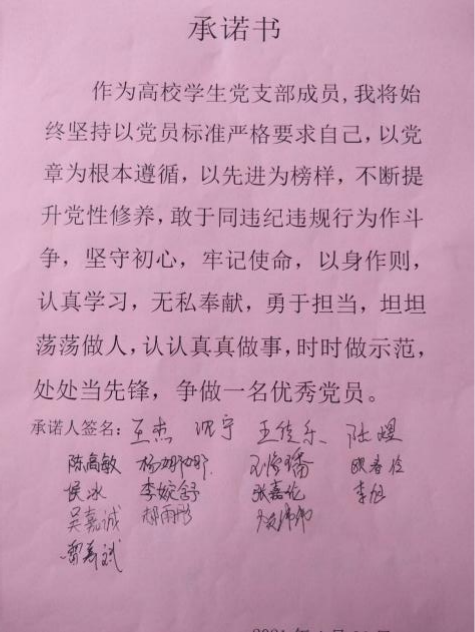 承诺书
作为高校学生党支部成员,我将始
终坚持以党员标准严格要求自己，以党
章为根本遵循，以先进为榜样，不断提
升党性修养，敢于同违纪违规行为作斗
争，坚守初心，牢记使命，以身作则，
认真学习，无私奉献，勇于担当，坦坦
荡荡做人，认认真真做事，时时做示范，
处处当先锋，争做一名优秀党员。
承诺人签名：王杰 沈宇 王佳乐
陈高敏 杨娜娜
侯冰 李婉舒 张嘉伦
吴嘉诚 郝雨彤